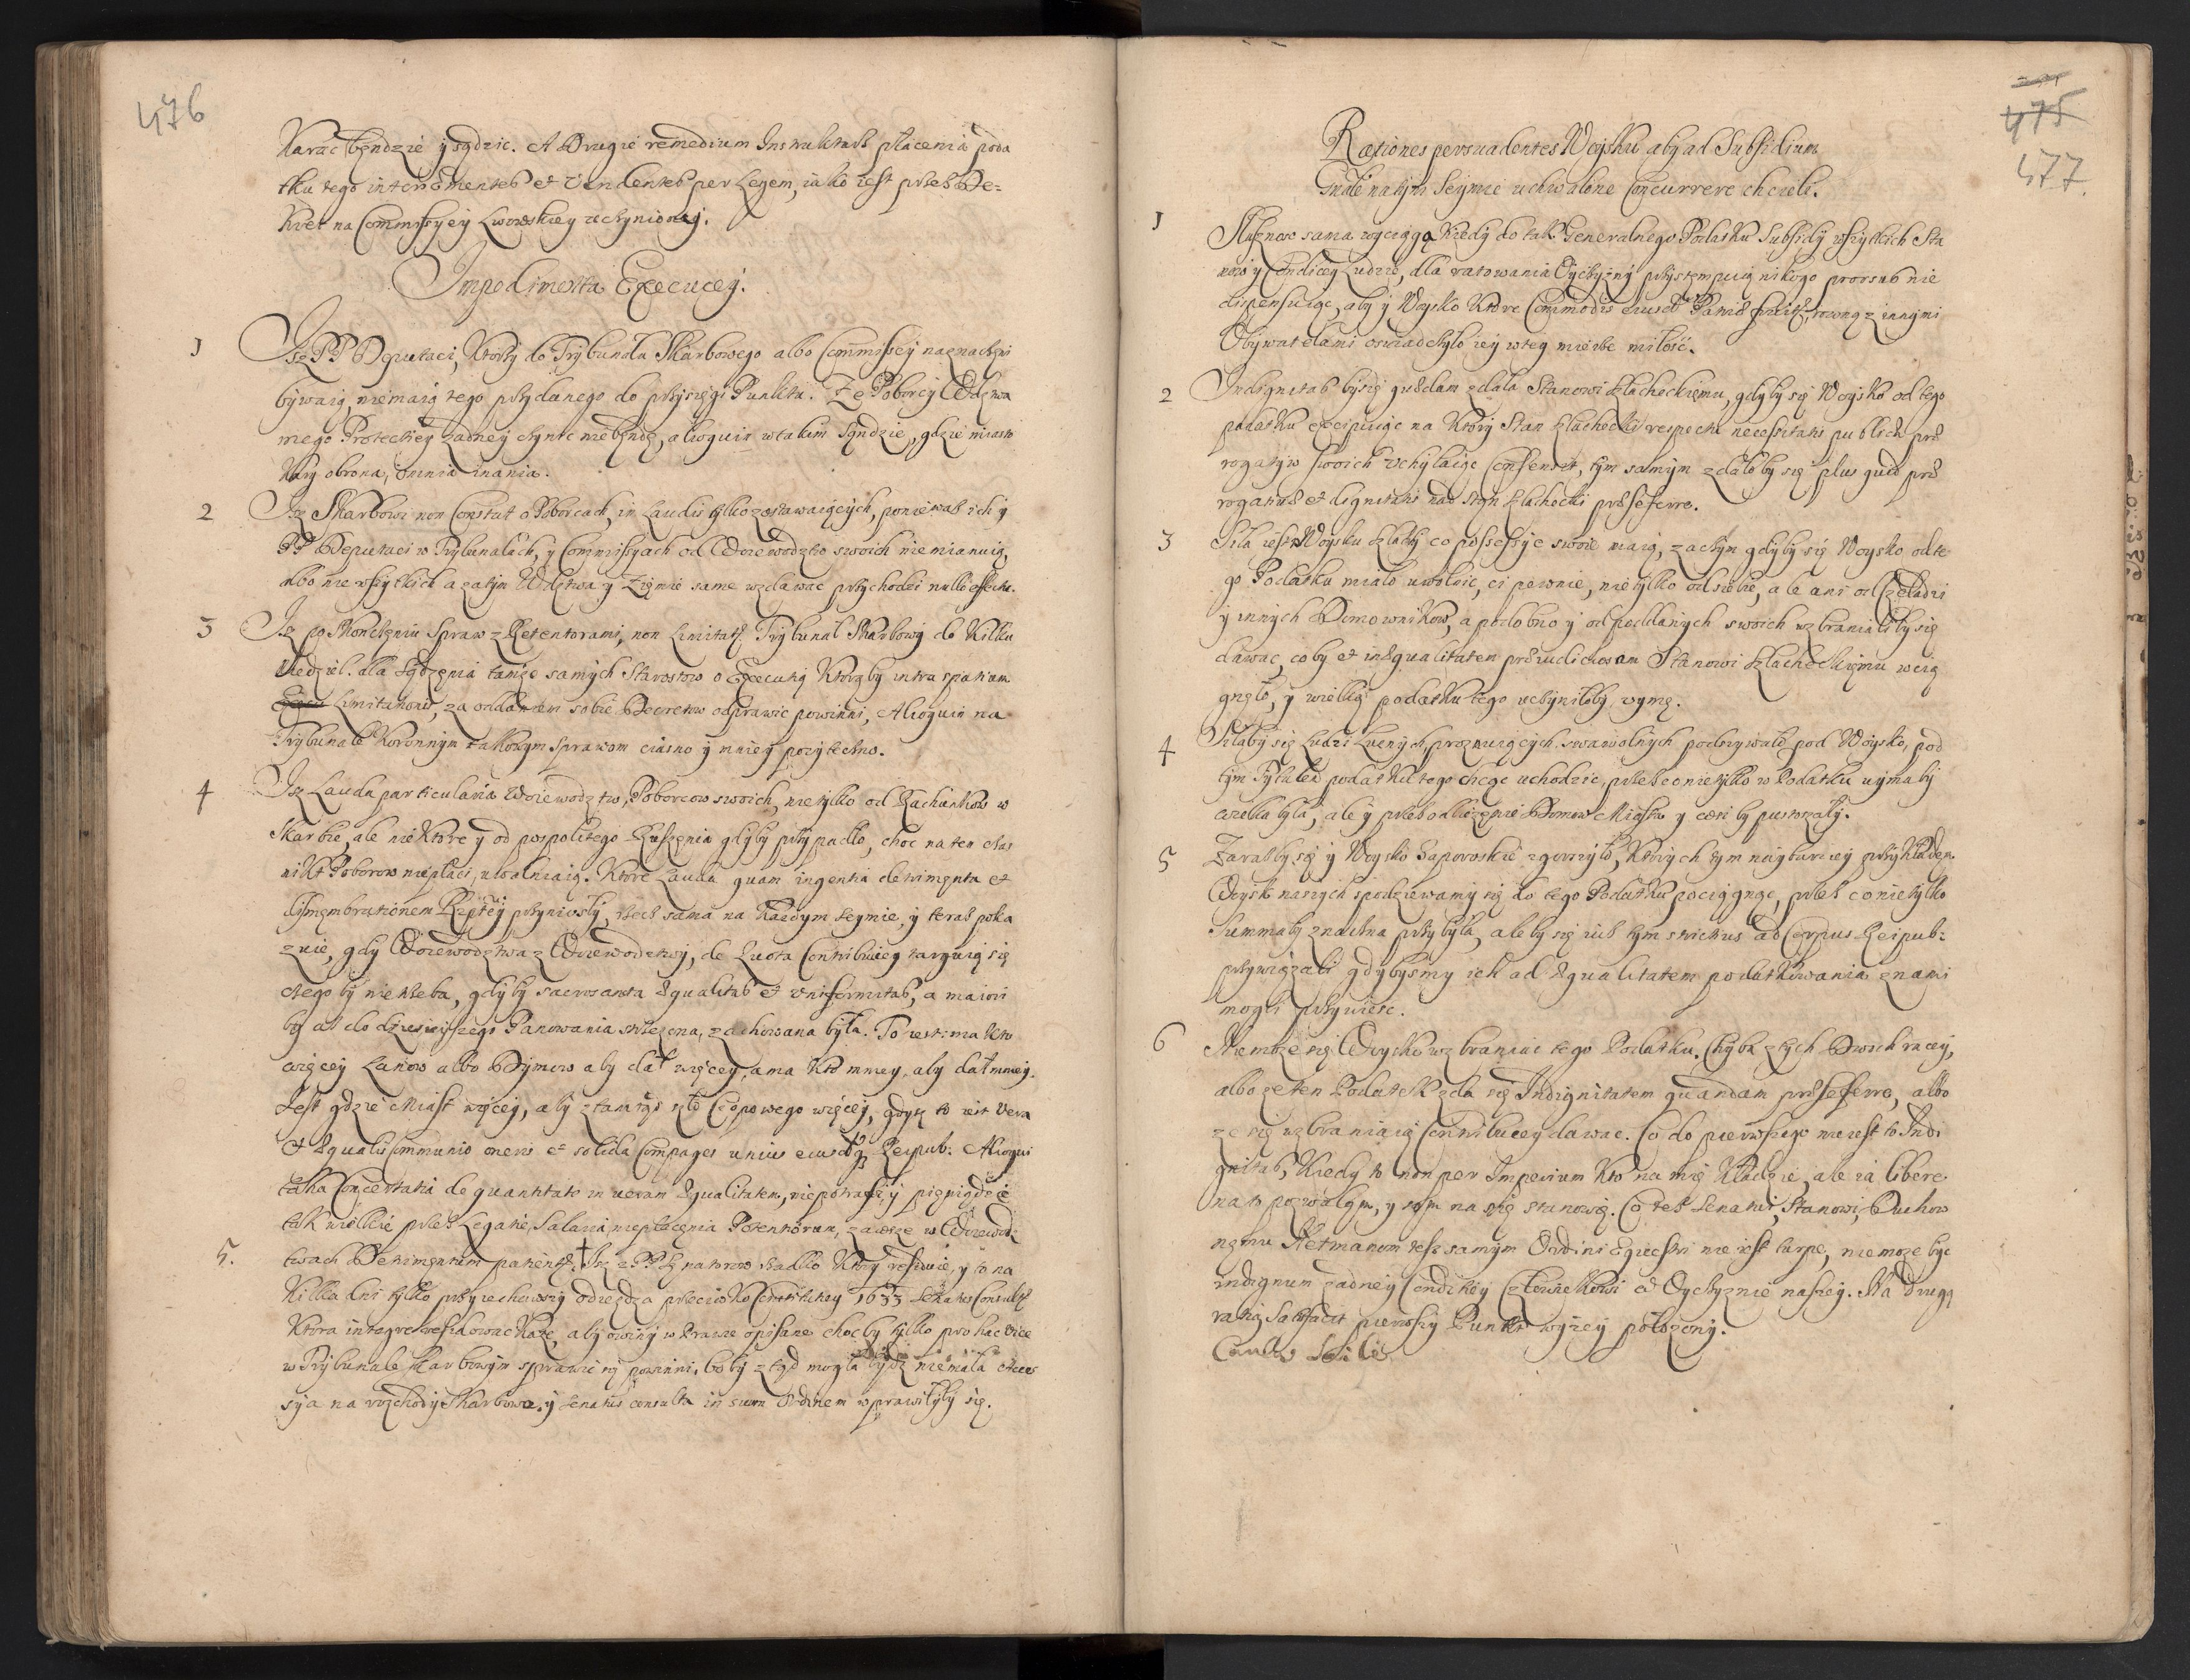 476
Karać będzie y sądzić. A Drugie remedium Instruktarż płacenia poda
tku tego intervenientes et vendentes per Legem, iako iest przes De=
kret na Commissyey Lwowskiey uczynioney.
Impedimenta Execucey.
1 Isz PP Deputaci, ktorzy do Trybunału Skarbowego albo Commissey naznaczeni
bywaią, niemaią tego przydanego do przysięgi Punktu. Ze Poborcy Wdztwa
mego Protekcyey żadney czynić nie będę, alioquin w takim sądzie, gdzie miasto
kary obrona, omnia inania.
2 Isz Skarbowi non Constat o Poborcach, in Laudis tylko zostawaiących, ponieważ ich y
PP Deputaci w Trybunałach, y Commissyach od Woiewodztw swoich nie mianuią,
albo nie wszytkich a zatym Wdztwa y Ziemie same wzdawać przychodzi nullo effectu.
3 Isz po skonczeniu Spraw z Retentorami, non Limitatur Trybunał Skarbowy do kilku
Niedziel. dla sądzenia tamże samych Starostow o Execucią ktorąby intra spatium
Limitationis, za oddaniem sobie Decretow odprawić powinni, Alioquin na
Trybunale Koronnym takowym Sprawom ciasno y mniey pożyteczno.
4 Isz Lauda particularia Woiewodztw, Poborcow swoich, nie tylko od Rachunkow w
Skarbie, ale niektore y od pospolitego Ruszenia gdyby przypadło, choć na ten czas
nikt Poborow niepłaci, uwalniaią. Ktore Lauda quam ingentia detrimenta et
dismembrationem Rzptey przyniosły, rzecz sama na każdym Seymie, y teraz poka
zuie, gdy Woiewodztwa z Woiewodztwy, de Quota Contribuciey targuią się
czegoby nie trzeba, gdyby sacrosancta æqualitas et uniformitas, a maiori
by aż do dzisieyszego Panowania strzeżona, zachowana była. To iest: ma kto
więcey Łanow albo Dymow aby dał więcey, a ma kto mniey, aby dał mniey.
Jest gdzie Miast więcey, aby z tamtąd szło Czopowego więcey, gdysz to iest vera
et æqualis Communio oneris et solida Compages unius eiusdemque Reipub: Alioqui
taka Concertatia de quantitate in veram æqualitatem, niepotrafi, y pieniądze
tak wielkie przes Legatie, Salaria, niepłacenia Potentiorum, zawsze w Woiewodz
5. twach Detrimentum patientur. † Isz z PP Senatorow rzadko ktory residuie, y to na
kilka dni tylko przyiechawszy odieżdża przeciwko Constitucyey 1633 Senatus Consultis
ktora integre residować każe, aby o winy w Prawie opisane choć by tylko pro hac vice
w Trybunale Skarbowym sprawić się powinni, bo by z tąd mogła bydź niemała Acces
sya na rozchody Skarbowe, y Senatus consulta in suum Ordinem wprawiłyby się.
475
477
Rationes persuadentes Woysku aby ad Subsidium
Grale na tym Seymie uchwalone Concurrere chcieli.
1 Słuszność sama wyciąga kiedy do tak Generalnego Podatku Subsidij wszytkich Sta
now y Condicey Ludzie, dla ratowania Oyczyzny przystempuią nikogo prorsus nie
dispensuiąc, aby y Woysko ktore Commodis eiusdem Patriæ fruitur, rowną z innymi
Obywatelami oswiadczyło iey w tey mierze miłość.
2 Indignitas by się quædam zdała Stanowi szlacheckiemu, gdyby się Woysko od tego
podatku excipuiąc na ktory Stan szlachecki respectu necessitatis publicæ præ
rogatyw swoich uchylaiąc Consensit, tym samym zdało by się plus quid præ
rogativæ et dignitatis nad stan szlachecki præseferre.
3 Siła iest w Woysku szlachty co possessye swoie maią, zaczym gdyby się Woysko od te
go Podatku miało uwolnić, ci pewnie, nie tylko od siebie, ale ani od Czeladzi
y innych Domownikow, a podobno y od poddanych swoich wzbranialiby się
dawać, co by et inæqualitatem præiudiciosam Stanowi szlacheckiemu wcią
gnęło, y wielką podatku tego uczyniłoby uymę.
4 Siłaby się Ludzi Luźnych, prożnuiących, swawolnych podszywało pod Woysko, pod
tym Tytułem podatku tego chcąc uchodzić, przes co nie tylko w Podatku uymaby
wielka była, ale y przes odbieżenie Domow Miasta y wsi by pustoszały.
5 Zarazby się y Woysko Zaporoskie zgorszyło, ktorych tym naybarziey przykładem
Woysk naszych spodziewamy się do tego Podatku pociągnąć, przes co nie tylko
summaby znaczna przybyła, ale by się iusz tym strictius ad Corpus Reipub:
przywiązali gdybysmy ich ad æqualitatem podatkowania z nami
mogli przywieść.
6 Niemoże się Woysko wzbraniać tego Podatku. Chyba z tych Dwoch racey,
albo że ten Podatek zda się Indignitatem quandam præseferre, albo
że się wzbraniaią Contribucey dawać. Co do pierwszego nie iest to Indi
gnitas, kiedy to non per Imperium kto na mię kładzie, ale ia libere
na to pozwalam, y sam na się stanowię. Co też Senatui, Stanowi Duchow
nemu Hetmanom też samym Ordini Equestri nie iest turpe, nie może być
indignum żadney Condicyey Człowiekowi w Oyczyznie naszey. Na drugą
ratią Satisfacit pierwszy Punkt wyżey położony.